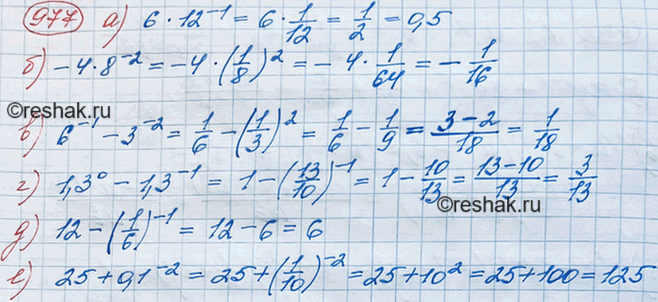 977 а) 6 · 12⁻¹ = 6 · 1/12 = 1/2 = 0,5
б) −4 · 8⁻² = −4 · (1/8)² = −4 · 1/64 = −1/16
©reshak.ru
в) 6⁻¹ − 3⁻² = 1/6 − (1/3)² = 1/6 − 1/9 = (3−2)/18 = 1/18
г) 1,3⁰ − 1,3⁻¹ = 1 − (13/10)⁻¹ = 1 − 10/13 = (13−10)/13 = 3/13
©reshak.ru
д) 12 − (1/6)⁻¹ = 12 − 6 = 6
е) 25 + 0,1⁻² = 25 + (1/10)⁻² = 25 + 10² = 25 + 100 = 125